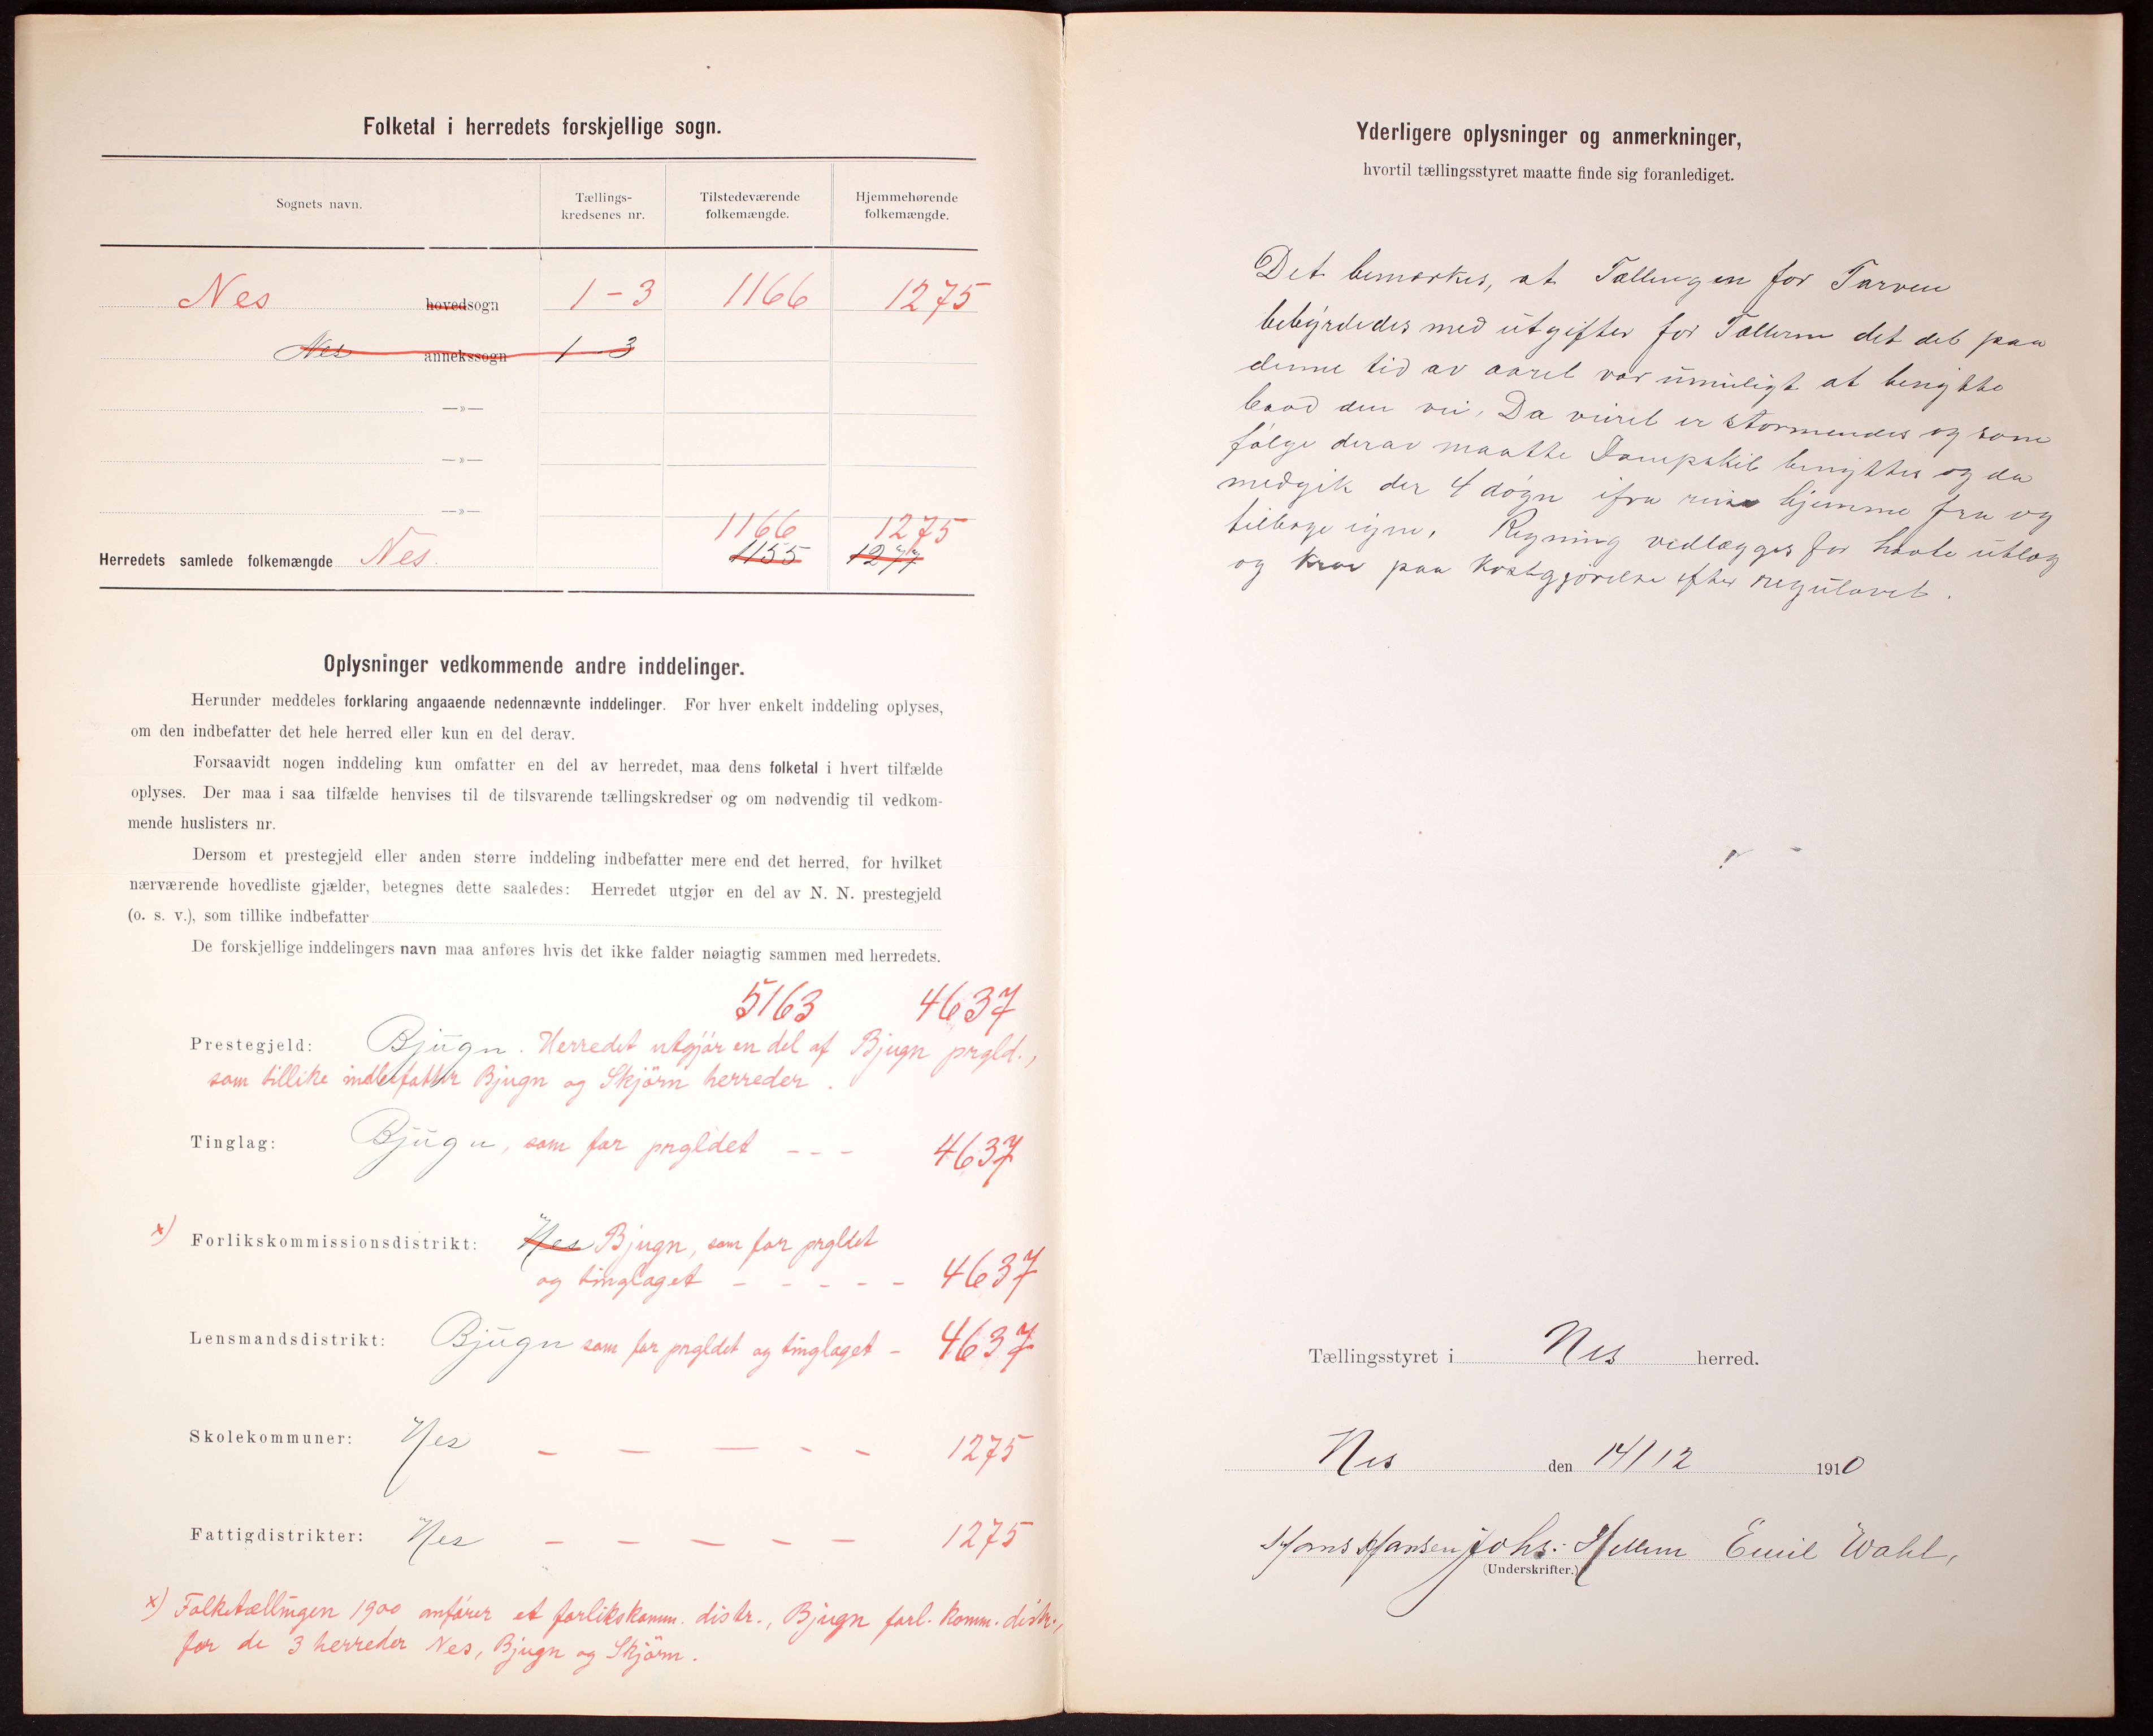 Folketal i herredets forskjellige sogn.
Sognets navn.
Tællings-
kredsenes nr.
Tilstedeværende
folkemængde.
Hjemmehørende
folkemængde.
Nes hovedsogn 1-3 1166 1275
Nes annekssogn 1-3
—»—
—»—
—»—
1166 1275
Herredets samlede folkemængde Nes. 1155 1277
Oplysninger vedkommende andre inddelinger.
Herunder meddeles forklaring angaaende nedennævnte inddelinger. For hver enkelt inddeling oplyses,
om den indbefatter det hele herred eller kun en del derav.
Forsaavidt nogen inddeling kun omfatter en del av herredet, maa dens folketal i hvert tilfælde
oplyses. Der maa i saa tilfælde henvises til de tilsvarende tællingskredser og om nødvendig til vedkom-
mende huslisters nr.
Dersom et prestegjeld eller anden større inddeling indbefatter mere end det herred, for hvilket
nærværende hovedliste gjælder, betegnes dette saaledes: Herredet utgjør en del av N. N. prestegjeld
(o. s. v.), som tillike indbefatter
De forskjellige inddelingers navn maa anføres hvis det ikke falder nøiagtig sammen med herredets.
5163 4637
Prestegjeld: Bjugn. Herredet utgjør en del af Bjugn prgld.,
som tillike indbefatter Bjugn og Skjørn herreder.
Tinglag: Bjugn, som for prgldet - - - 4637
x) Forlikskommissionsdistrikt: Nes Bjugn, som for prgldet
og tinglaget - - - - - 4637
Lensmandsdistrikt: Bjugn som for prgldet og tinglaget - 4637
Skolekommuner: Nes - - - - - 1275
Fattigdistrikter: Nes - - - - - 1275
x) Folketællingen 1900 anfører et forlikskomm. distr., Bjugn forl. komm. distr.,
for de 3 herreder Nes, Bjugn og Skjørn.
Yderligere oplysninger og anmerkninger,
hvortil tællingsstyret maatte finde sig foranlediget.
Det bemærkes, at Tællingen for Tarven
bebyrdedes med utgifter for Tælleren det det paa
denne tid av aaret var umuligt at benytte
baad den vei, Da veiret er stormendes og som
følge derav maatte Dampskib benyttes og da
medgik der 4 døgn ifra reise hjemme fra og
tilbage igjen. Regning vedlægges for havte utlæg
og krav paa kostgjørelse efter regulavet.
Tællingsstyret i Nes herred.
Nes den 14/12 1910
Hans Hansen Johs. Hellem Emil Wahl,
(Underskrifter.)